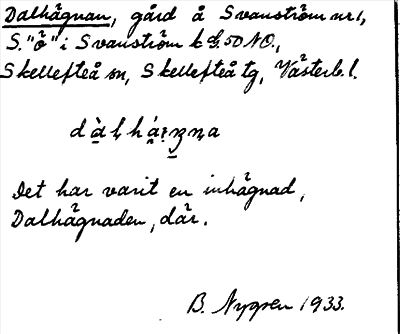 Dalhägnan, gård å Svanström nr 1,
S. "ö" i Svanström k bl. 50 NO.,
Skellefteå sn, Skellefteå tg, Västerb. l.
Det har varit en inhägnad,
Dalhägnaden, där.
B. Nygren 1933.